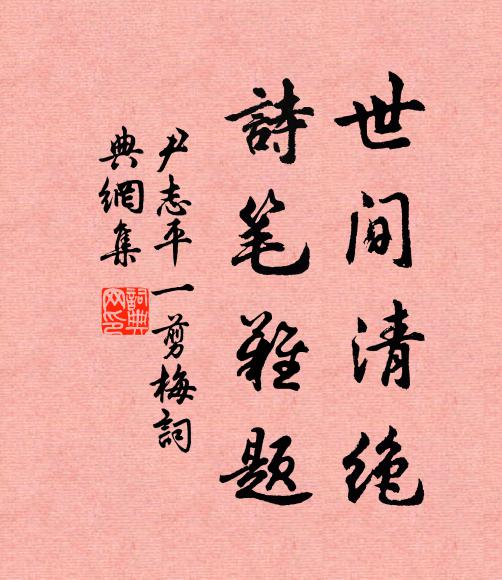 世间清绝
詩笔難题
尹志平一剪梅詞
典網集
詞典网印